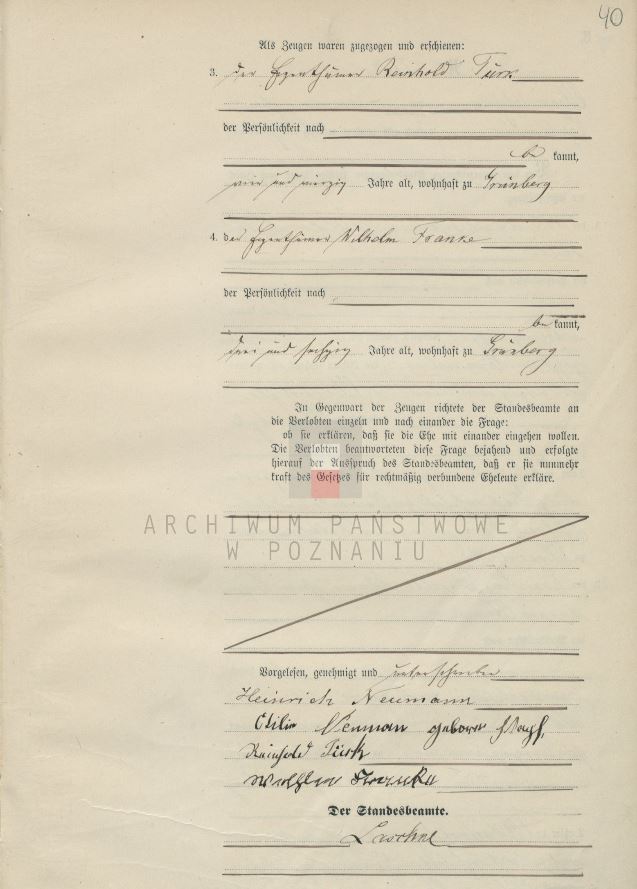 40
Als Zeugen waren zugezogen und erschienen:
3. der Eigenthümer Reinhold Türk
der Persönlichkeit nach
be kannt,
vier und vierzig Jahre alt, wohnhaft zu Grünberg
4. der Eigenthümer Wilhelm Franke
der Persönlichkeit nach
be kannt,
drei und sechzig Jahre alt, wohnhaft zu Grünberg
In Gegenwart der Zeugen richtete der Standesbeamte an
die Verlobten einzeln und nach einander die Frage:
ob sie erklären, daß sie die Ehe mit einander eingehen wollen.
Die Verlobten beantworteten diese Frage bejahend und erfolgte
hierauf der Ausspruch des Standesbeamten, daß er sie nunmehr
kraft des Gesetzes für rechtmäßig verbundene Eheleute erkläre.
ARCHIWUM PAŃSTWOWE
W POZNANIU
Vorgelesen, genehmigt und unterschrieben
Heinrich Neumann
Neuman geborene
Reinhold Türk
Franke
Der Standesbeamte.